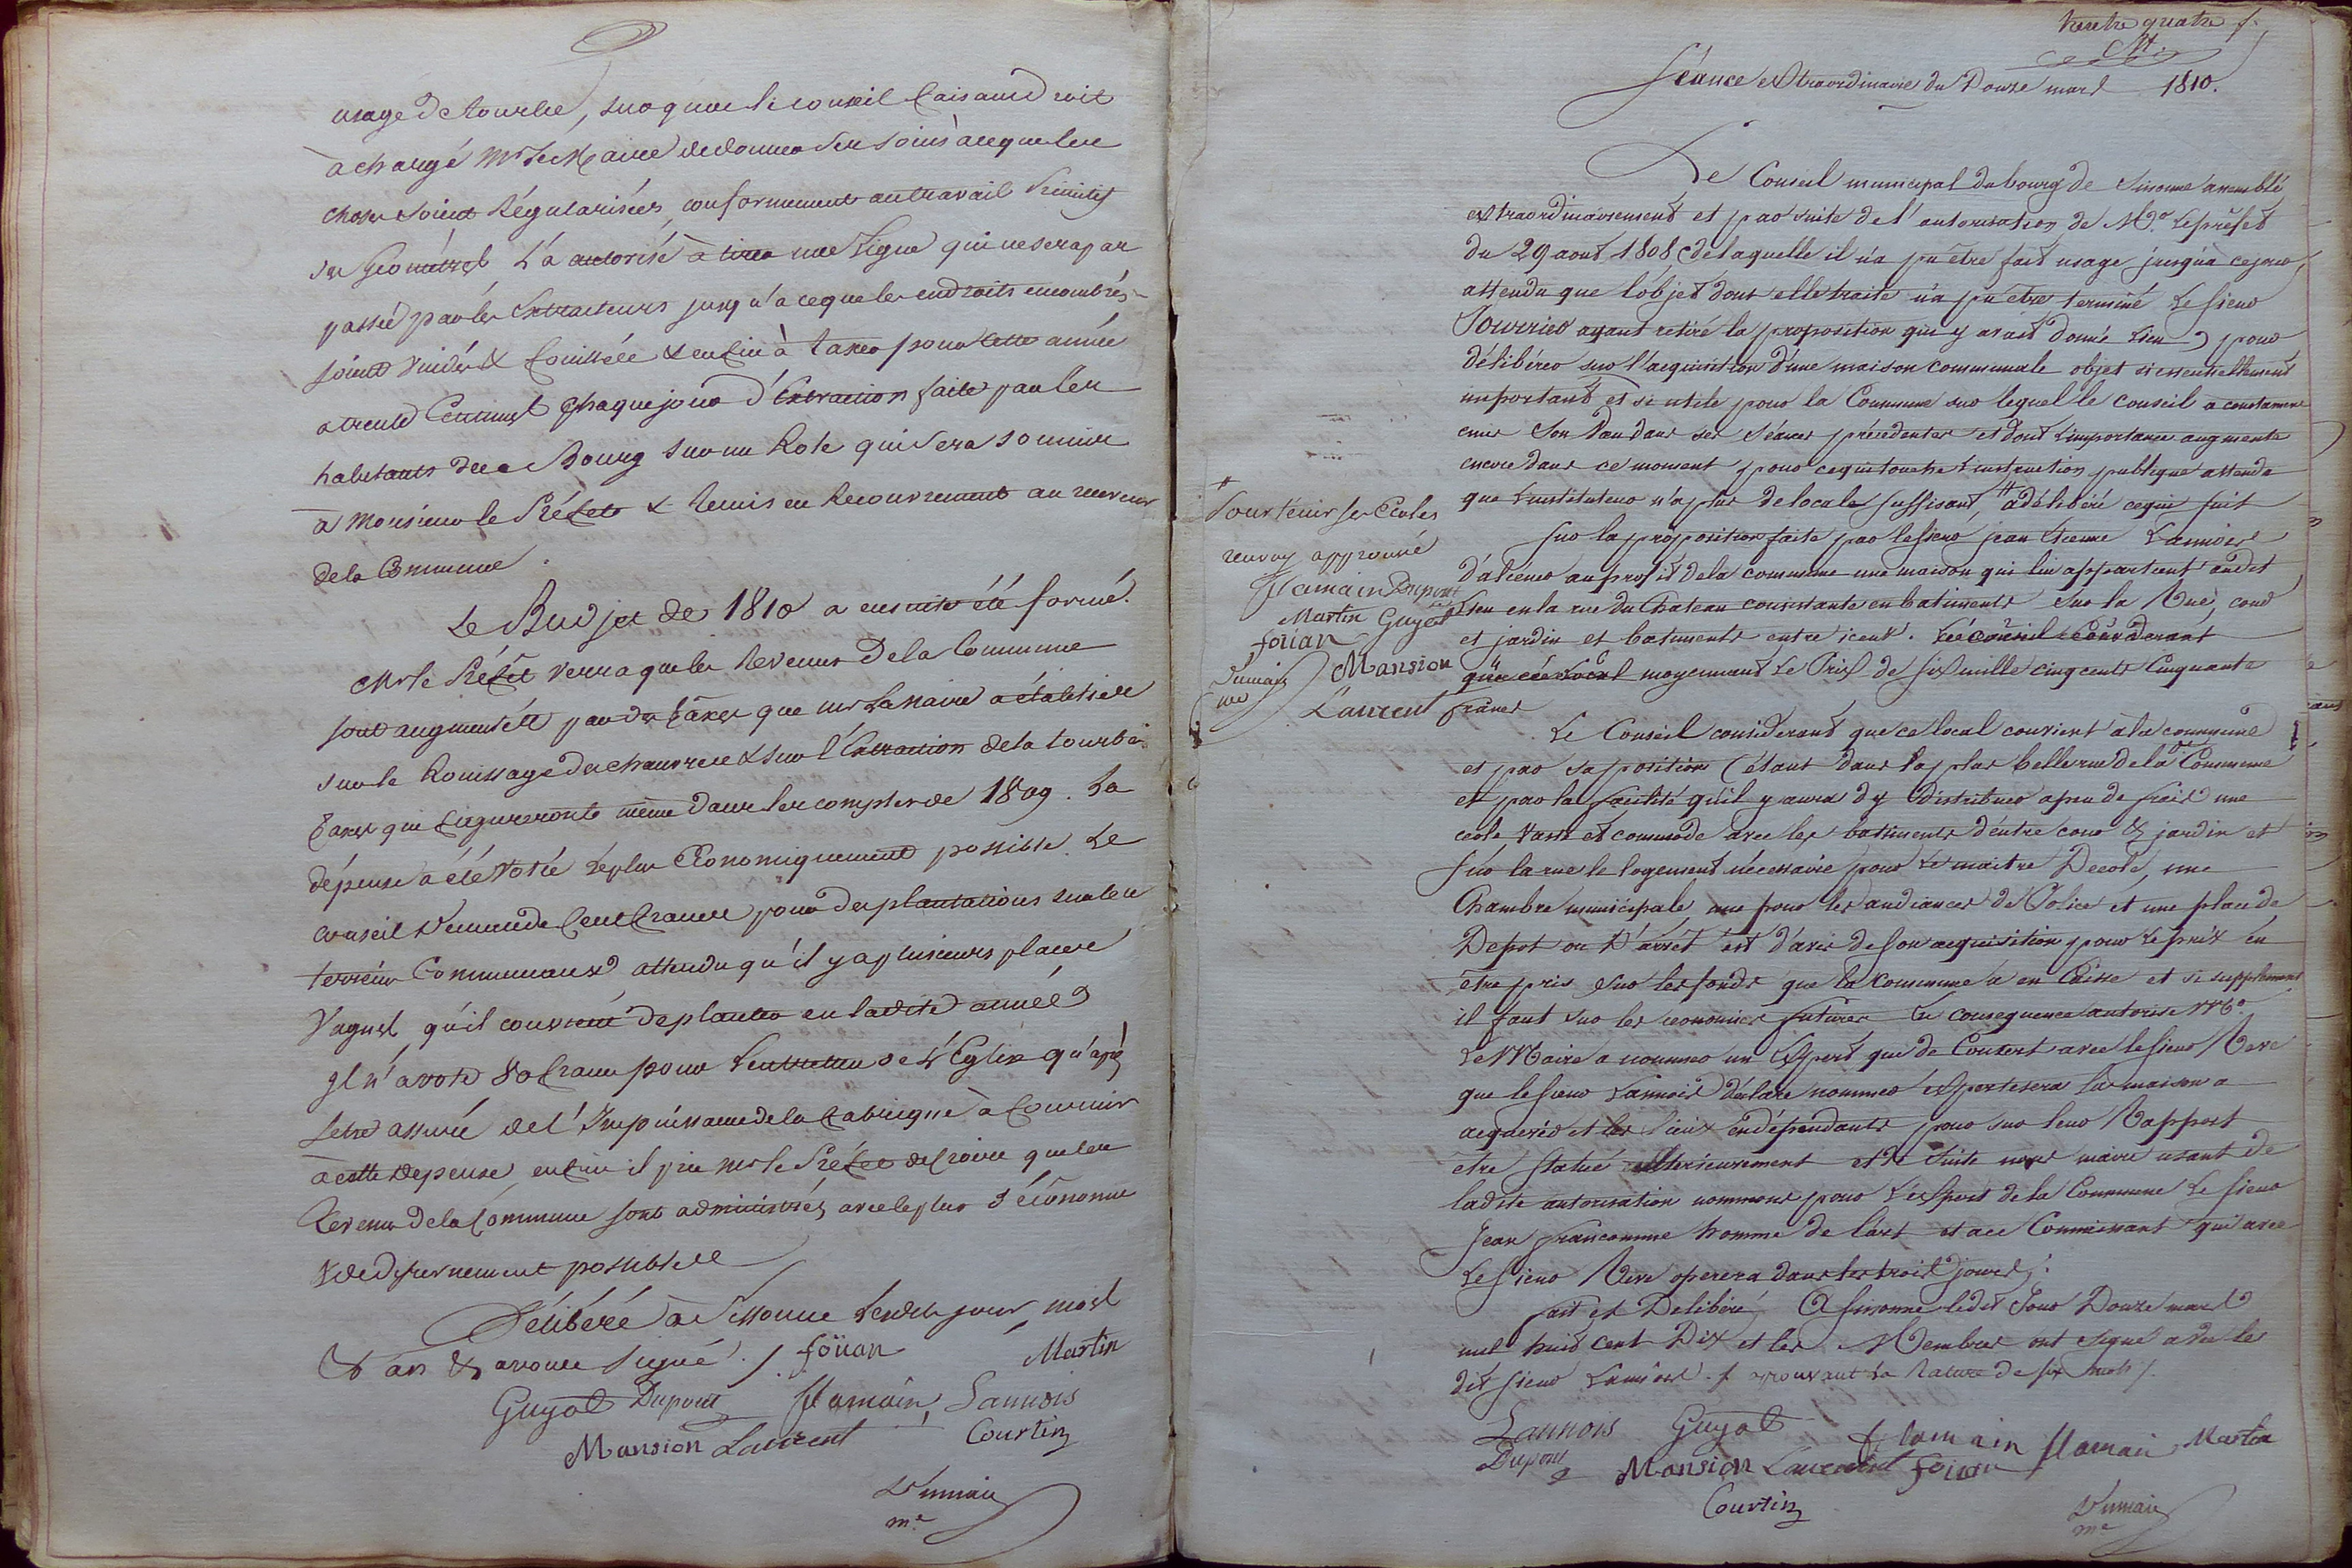 usage de tourbe, sur quoi le conseil faisant droit
a chargé Mr le Maire de donner ses soins à ce que les
choses soient Régularisées conformement au travail primitif
du Géometre L'a autorisé à tirer une Ligne qui ne sera pas
passée par les Extracteurs jusqu'à ce que les endroits encombrés
soient vuidés & enfin à taxer pour cette année
a trente Centimes chaque jour d'Extraction faite par les
habitants de ce Bourg sur un Role qui sera soumis
à Monsieur le Préfet & Remis en Recouvrement au receveur
de la Commune.
Le Budjet de 1810 a ensuite été formé.
Mr le Préfet verra que les Revenus de la Commune
sont augmentés par des taxes que mr Le Maire a établies
sur le Rouissage des chanvres & sur l'Extraction de la tourbe
taxes que figureront même dans les comptes de 1809. La
dépense a été votée le plus Economiquement possible. Le
conseil demande Cent francs pour des plantations sur les
terreins Communaux attendu qu'il y a plusieurs places
Vagues qu'il convient de planter en ladite année
Il n'a voté 80 francs pour L'entretien de L'Eglise qu'après
s'etre assuré de l'Impuissance de la fabrique à fournir
à cette depense, enfin il prie Mr le Préfet de croire que les
Revenus de la Commune sont administrés avec le plus d'économie
& de discernement possible
Délibéré à Sissonne Lesdits jour, mois
& an & avons signé ./. foüan Martin
Guyot Dupont flamain Lannois
Mansion Laurent Courtin
Dumain
me
trente quatre f.
Séance extraordinaire du Douze mars 1810.
Le Conseil municipal du bourg de Sissonne assemblé
extraordinairement et par suite de l'autorisation de Mr. Le préfet
du 29 aout 1808 (de laquelle il n'a pu être fait usage jusqu'à ce jour,
attendu que l'objet dont elle traite n'a pu être terminé Le sieur
ayant retiré la proposition qui y avait donné Lieu) pour
délibérer sur l'acquisition d'une maison communale objet si essentiellement
important et si utile pour la Commune sur lequel le conseil a constamment
emis Son dans ses Séances précedentes et dont L'importance augmente
encore dans ce moment pour ce qui touche L'instruction publique attendu
que L'instituteur n'a plus de locale suffisant, # a délibéré ce qui suit
#
Pour tenir ses Ecoles
renvoy approuvé
flamain Dupont
Martin Guyot
foüan
Mansion
Dumain
me
Laurent
Sur la proposition faite par le sieur jean Etienne Lannois
d'aliéner au profit de la commune une maison qui lui appartient audit
Lieu en la rue du Chateau consistante en batiments Sur la Rue, cour
et jardin et batiments entre iceux. Le Conseil Considerant
que ce Local moyennant Le Prix de six mille cinq cents Cinquante
francs
Le Conseil considerant que ce local convient à la commune
et par sa position (étant dans la plus belle rue de la de Commune
et par la facilité qu'il y aura d'y distribuer a peu de frais une
ecole vaste et commode avec les batiments d'entre cour & jardin et
sur la rue le logement nécessaire pour Le maitre Decole, une
Chambre municipale, une pour les audiances de Police et une place de
Depot ou D'arrêt est d'avis de son acquisition pour Le prix en
être pris Sur les fonds que la Commune a en Caisse et si supplement
il faut sur les economies futures En consequence autorise Mr.
Le Maire a nommer un Expert qui de Concert avec le sieur Neve
que le sieur Lannois déclare nommer expertisera la maison a
acquerir et les lieux endépendants pour sur leur Rapport
être statué ulterieurement et de Suite nous maire usant de
ladite autorisation nommons pour L'expert de la Commune Le sieur
Jean francomme homme de l'art et a ce Connaissant qui avec
Le sieur Neve operera dans les trois jours.
fait et Deliberé A Sissonne ledit Jour Douze mars
mil huit cent Dix et les Membres ont Signé avec le
dit sieur Lannois ./. approuvant la Rature de six mots ./.
Lannois Guyot flamain flamain Martin
Dupont Mansion Laurent foüan
Courtin
Dumain
me